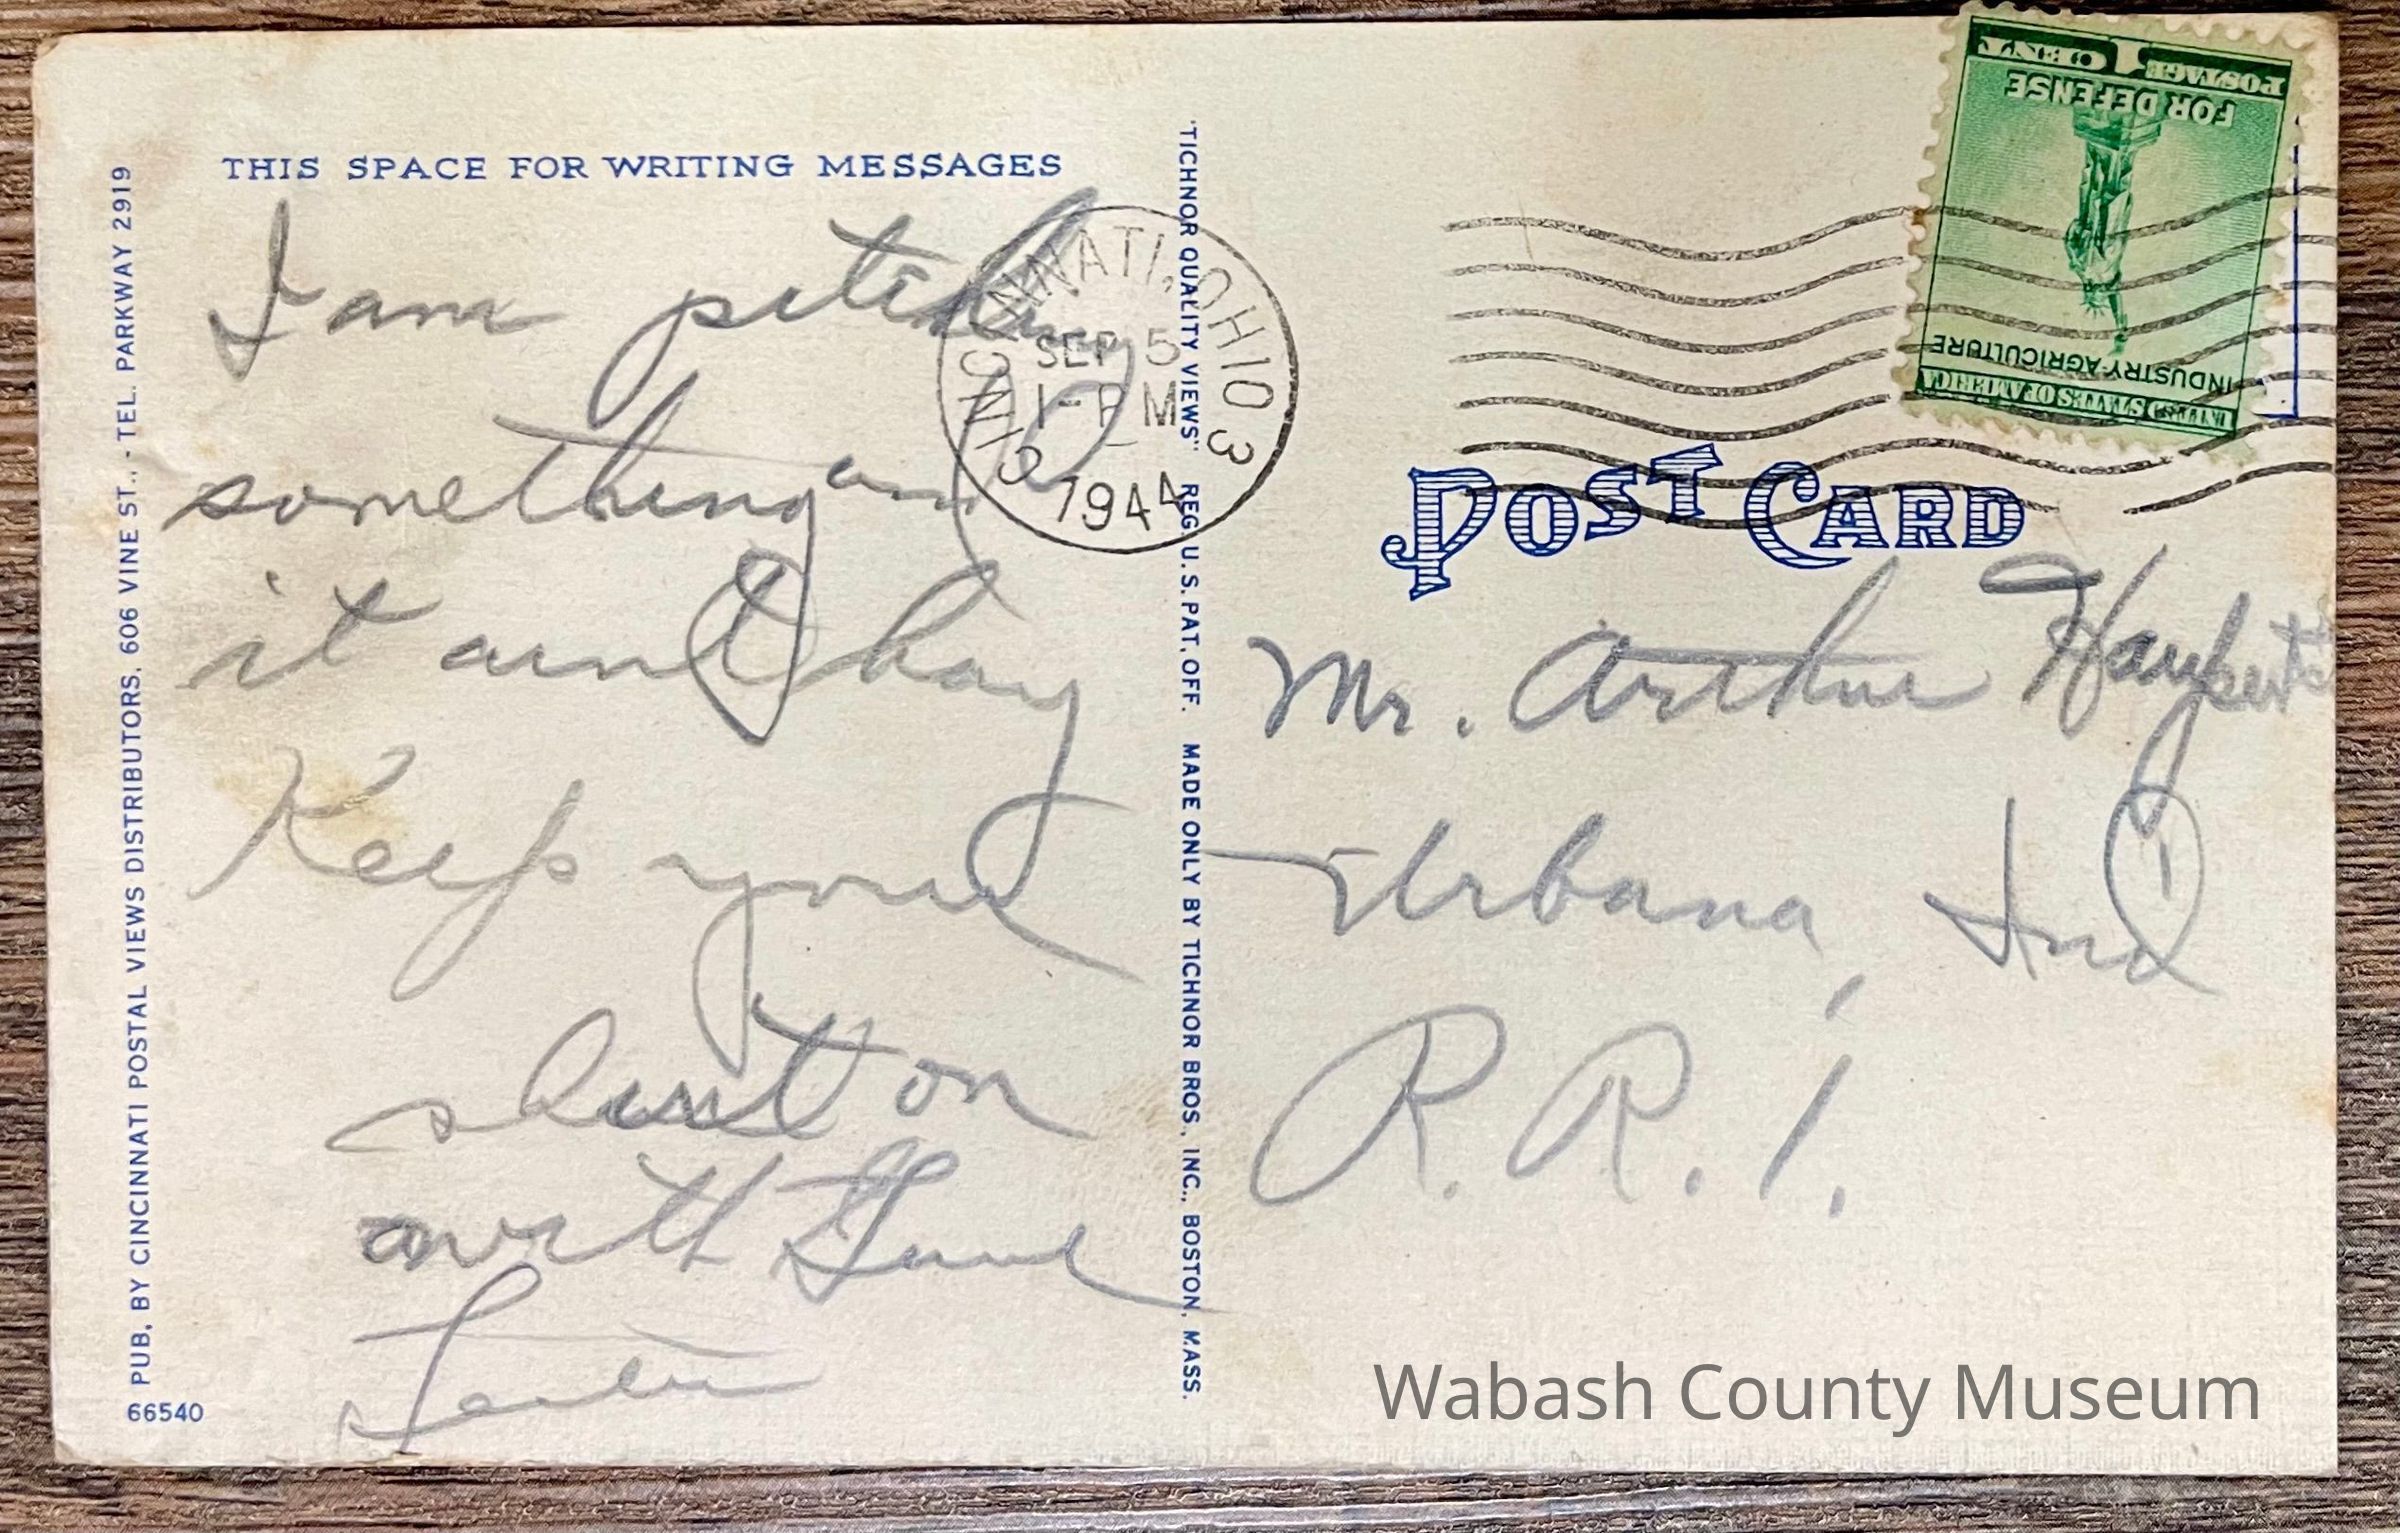 THIS SPACE FOR WRITING MESSAGES
I am pitching
something and
it aint hay
Keep your
shirt on
with
PUB. BY CINCINNATI POSTAL VIEWS DISTRIBUTORS, 606 VINE ST., - TEL. PARKWAY 2919
66540
"TICHNOR QUALITY VIEWS" REG. U.S. PAT. OFF. MADE ONLY BY TICHNOR BROS., INC., BOSTON, MASS.
CINCINNATI, OHIO 3
SEP 5
1-PM
1944
1 CENT 1 POSTAGE
FOR DEFENSE
INDUSTRY-AGRICULTURE
UNITED STATES OF AMERICA
POST CARD
Mr. Arthur
Urbana, Ind
R. R. 1.
Wabash County Museum